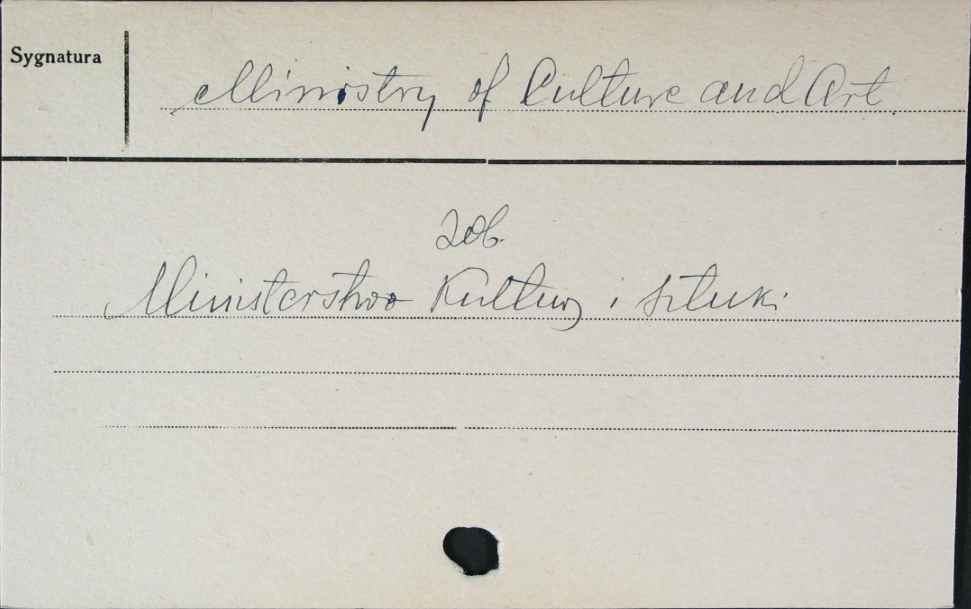 Sygnatura
Ministry of Culture and Art
zob.
Ministerstwo Kultury i Sztuki